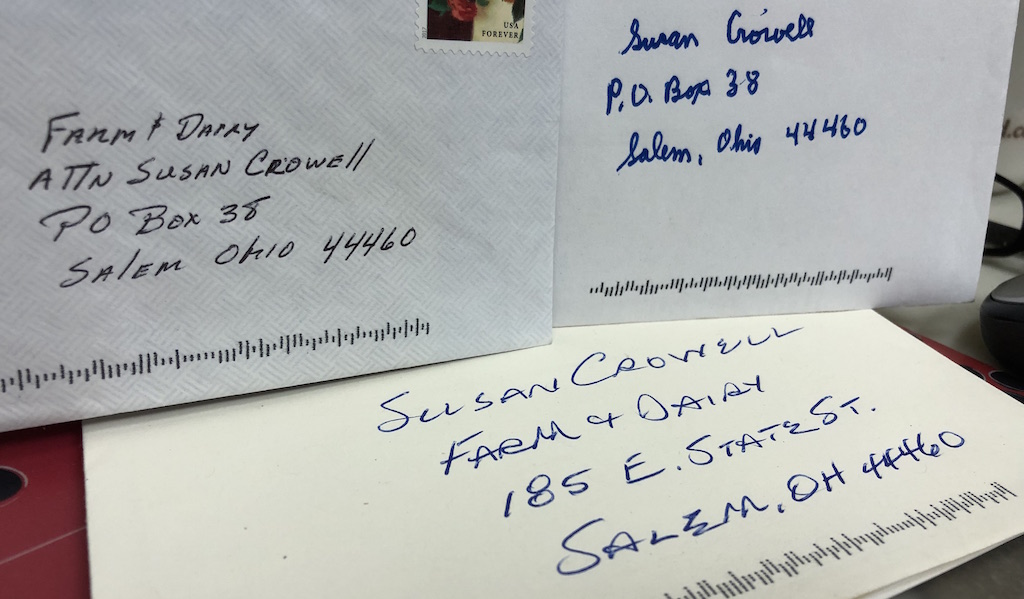 USA
FOREVER
FARM & DAIRY
ATTN SUSAN CROWEll
PO BOX 38
SAlEM OHIO 44460
Susan Crowell
P.O. Box 38
Salem, Ohio 44460
SUSAN CROWELL
FARM & DAIRY
185 E. STATE ST.
SALEM, OH 44460